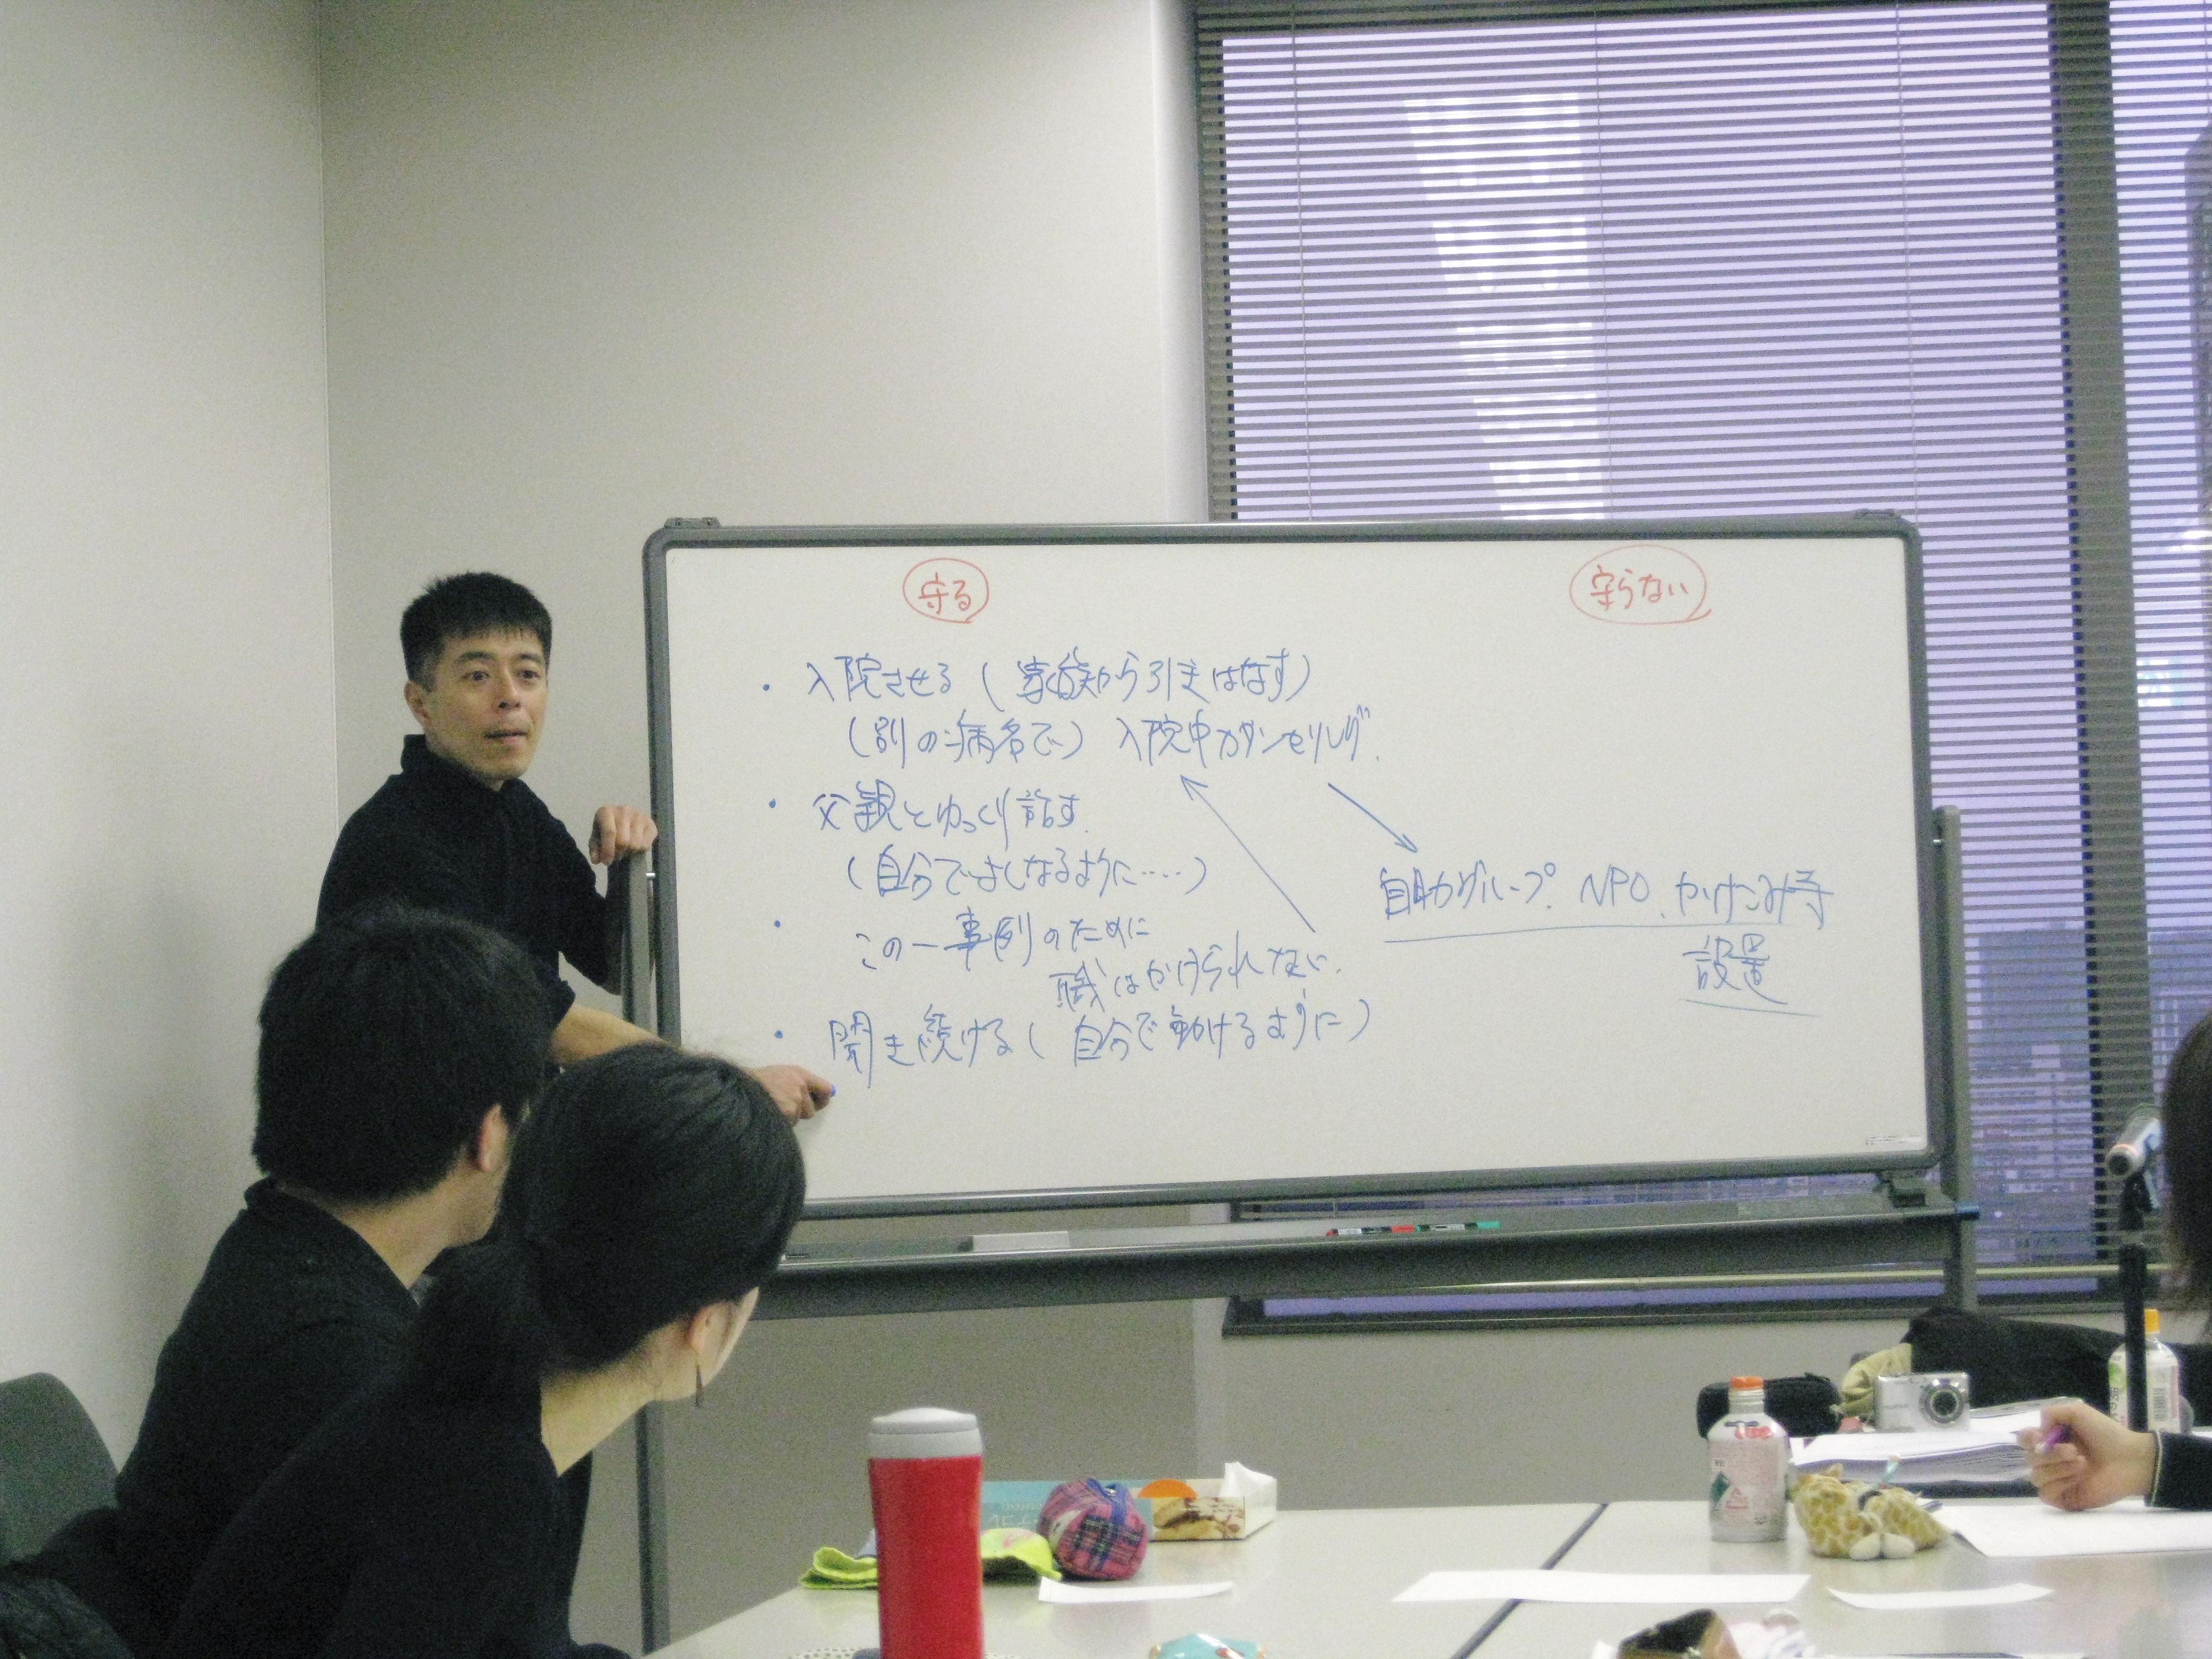 守る
守らない
・入院させる(家族から引きはなす)
(別の病名で)入院中カウンセリング.
・父親とゆっくり話す.
(自分でよくなるように‥‥)
・この一事例のために
職はかけられない.
・聞き続ける(自分で動けるように)
自助グループ. NPO、かけこみ寺
設置